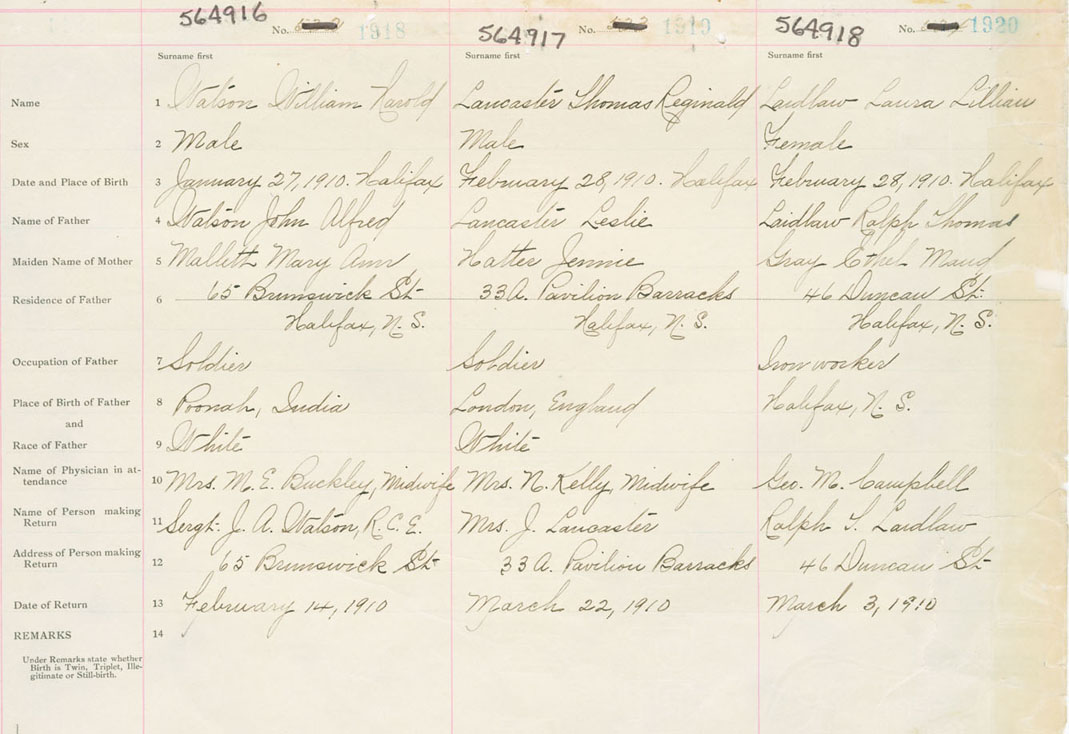 564916 No. 1918 564917 No. 1919 564918 No. 1920
Surname first Surname first Surname first
Name 1 Watson William Harold Lancaster Thomas Reginald Laidlaw Laura Lillian
Sex 2 Male Male Female
Date and Place of Birth 3 January 27, 1910. Halifax February 28, 1910. Halifax February 28, 1910. Halifax
Name of Father 4 Watson John Alfred Lancaster Leslie Laidlaw Ralph Thomas
Maiden Name of Mother 5 Mallett Mary Ann Hatter Jennie Gray Ethel Maud
Residence of Father 6 65 Brunswick St. 33 A. Pavilion Barracks 46 Duncan St.
Halifax, N. S. Halifax, N. S. Halifax, N. S.
Occupation of Father 7 Soldier Soldier Ironworker
Place of Birth of Father 8 Poonah, India London, England Halifax, N. S.
and
Race of Father 9 White White
Name of Physician in at-
tendance 10 Mrs. M. E. Buckley, Midwife Mrs. N. Kelly, Midwife Geo. M. Campbell
Name of Person making
Return 11 Sergt. J. A. Watson, R. C. E. Mrs. J. Lancaster Ralph T. Laidlaw
Address of Person making
Return 12 65 Brunswick St. 33 A. Pavilion Barracks 46 Duncan St.
Date of Return 13 February 14, 1910 March 22, 1910 March 3, 1910
REMARKS 14
Under Remarks state whether
Birth is Twin, Triplet, Ille-
gitimate or Still-birth.